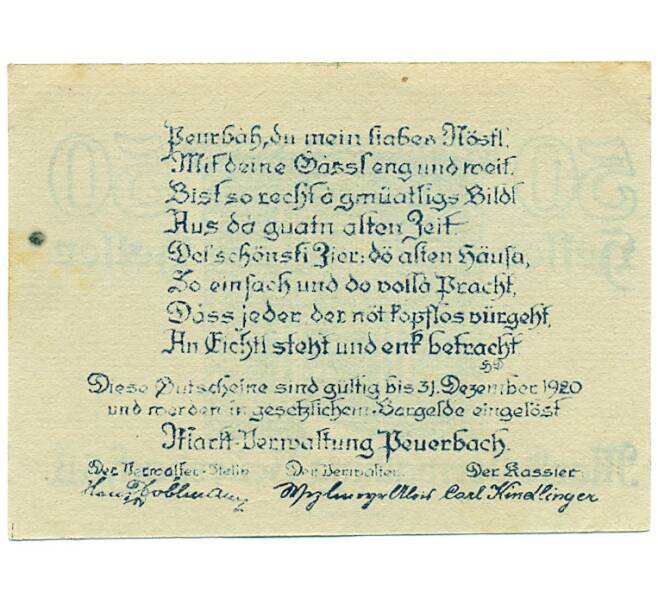 Peurbåh, du mein liabes Nöstl.
Mit deine Gåssl eng und weit.
Bist so recht å gmüatligs Bildl
Aus då guatn alten Zeit.
Dei schönsti Zier: dö alten Häusa,
So einfach und do vollå Pracht,
Dåss jeder der nöt kopflos vürgeht,
An Eichtl steht und enk betracht.
HD
Diese Gutscheine sind gültig bis 31. Dezember 1920
und werden in gesetzlichem Bargelde eingelöst
Markt-Verwaltung Peuerbach.
Der Verwalter-Stellv. Der Verwalter. Der Kassier
Carl Kindlinger